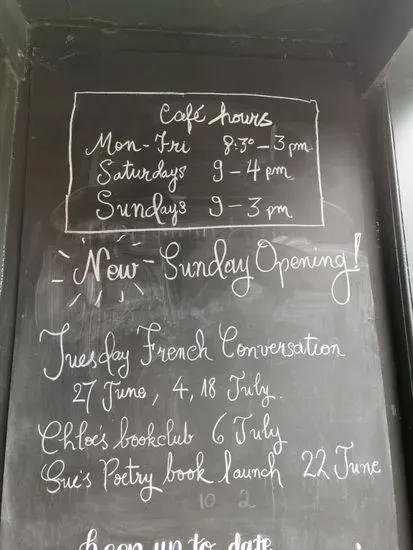 Café hours
Mon-Fri 8:30-3pm
Saturdays 9-4 pm
Sundays 9-3 pm
New-Sunday Opening!
Tuesday French Conversation
27 June, 4, 18 July.
Chloe's bookclub 6 July
Sue's Poetry book launch 22 June
10 2
keep up to date